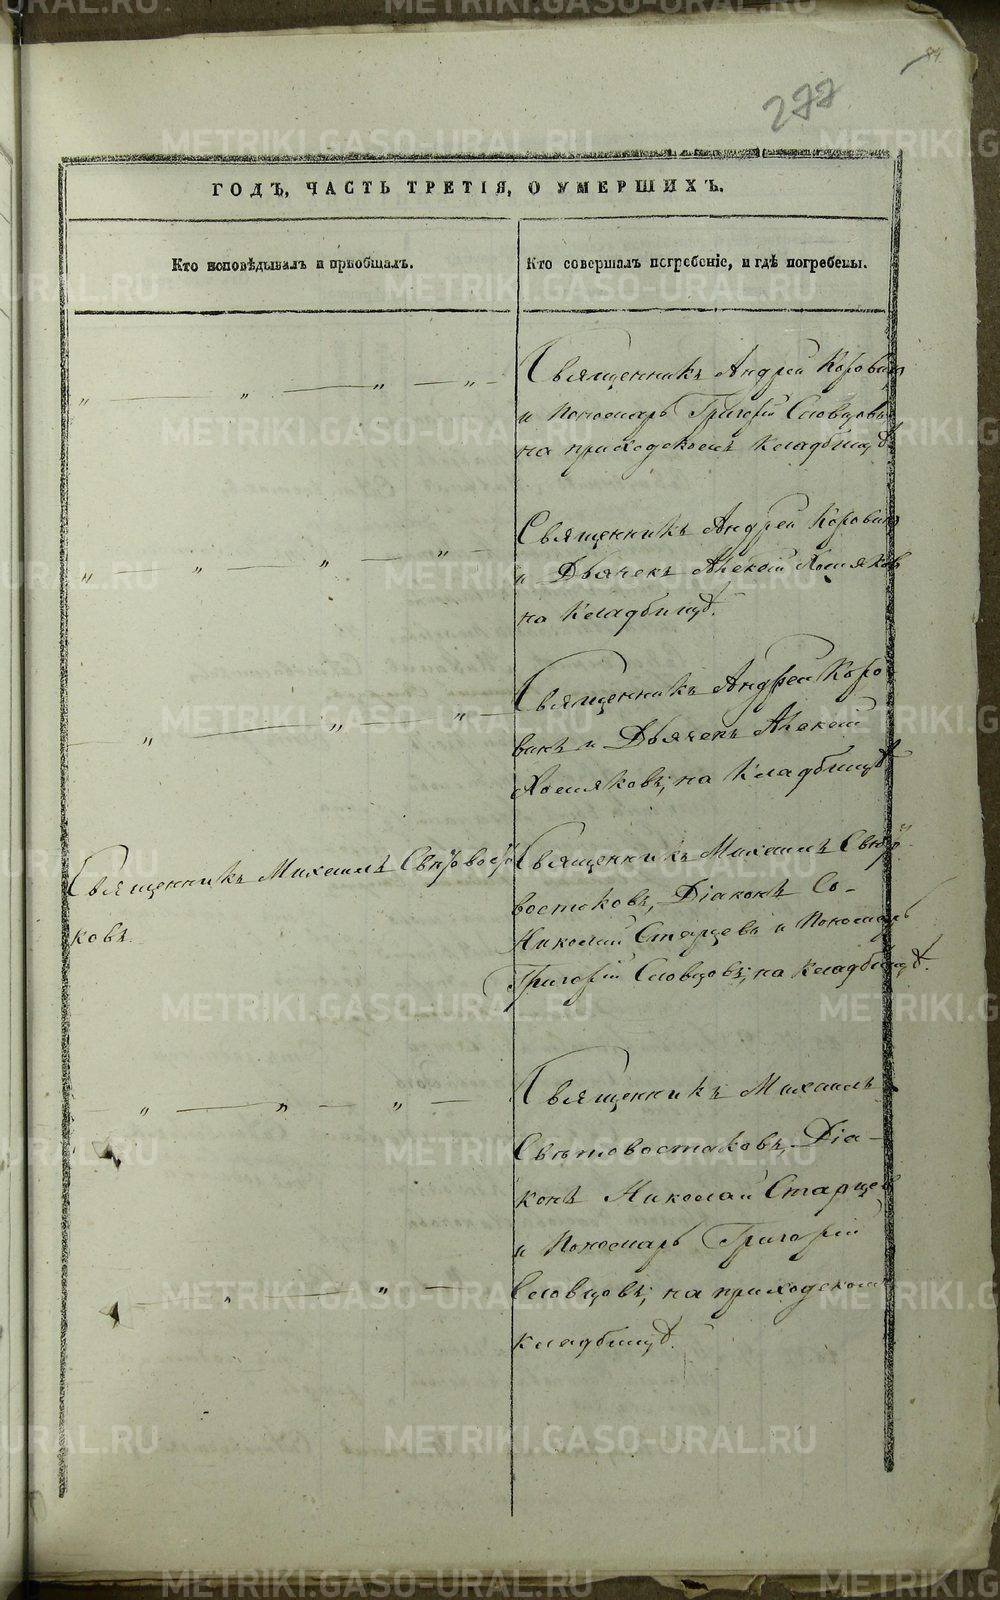 277
ГОДЪ, ЧАСТЬ ТРЕТІЯ, О УМЕРШИХЪ.
Кто исповѣдывалъ и пріобщалъ.
Кто совершалъ погребеніе, и гдѣ погребены.
Священникъ Андрей Коровинъ
и Пономарь Григорій Словцовъ
на приходскомъ кладбищѣ.
Священникъ Андрей Коровинъ
и Дьячекъ Алексій Хомяков
на кладбищѣ.
Священникъ Андрей Коро
винъ и Дьячекъ Алексій
Хомяковъ; на кладбищѣ
Священникъ Михаилъ Свѣтовосто
ковъ.
Священникъ Михаилъ Свѣто-
востоковъ, Діаконъ
Николай Старцевъ и Пономарь
Григорій Словцовъ; на кладбищѣ.
Священникъ Михаилъ
Свѣтовостоковъ, Діа-
конъ Николай Старцев
и Пономарь Григорій
Словцовъ; на приходском
кладбищѣ.
METRIKI.GASO-URAL.RU